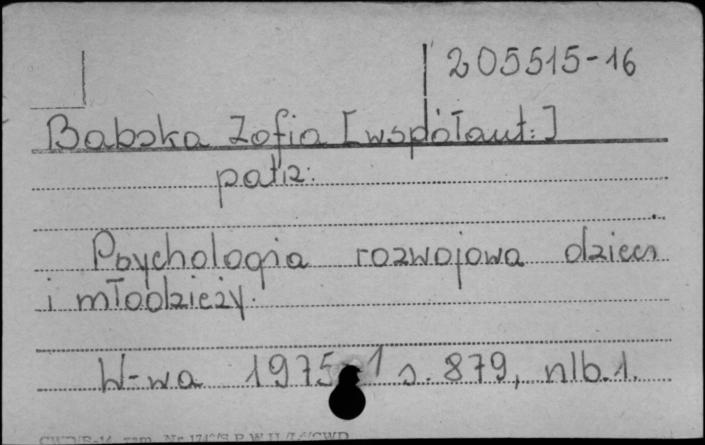 205515-16
Babska Zofia [współaut:]
patrz:
Psychologia rozwojowa dzieci
i młodzieży.
W-wa 1975 s. 879, nlb. 1.